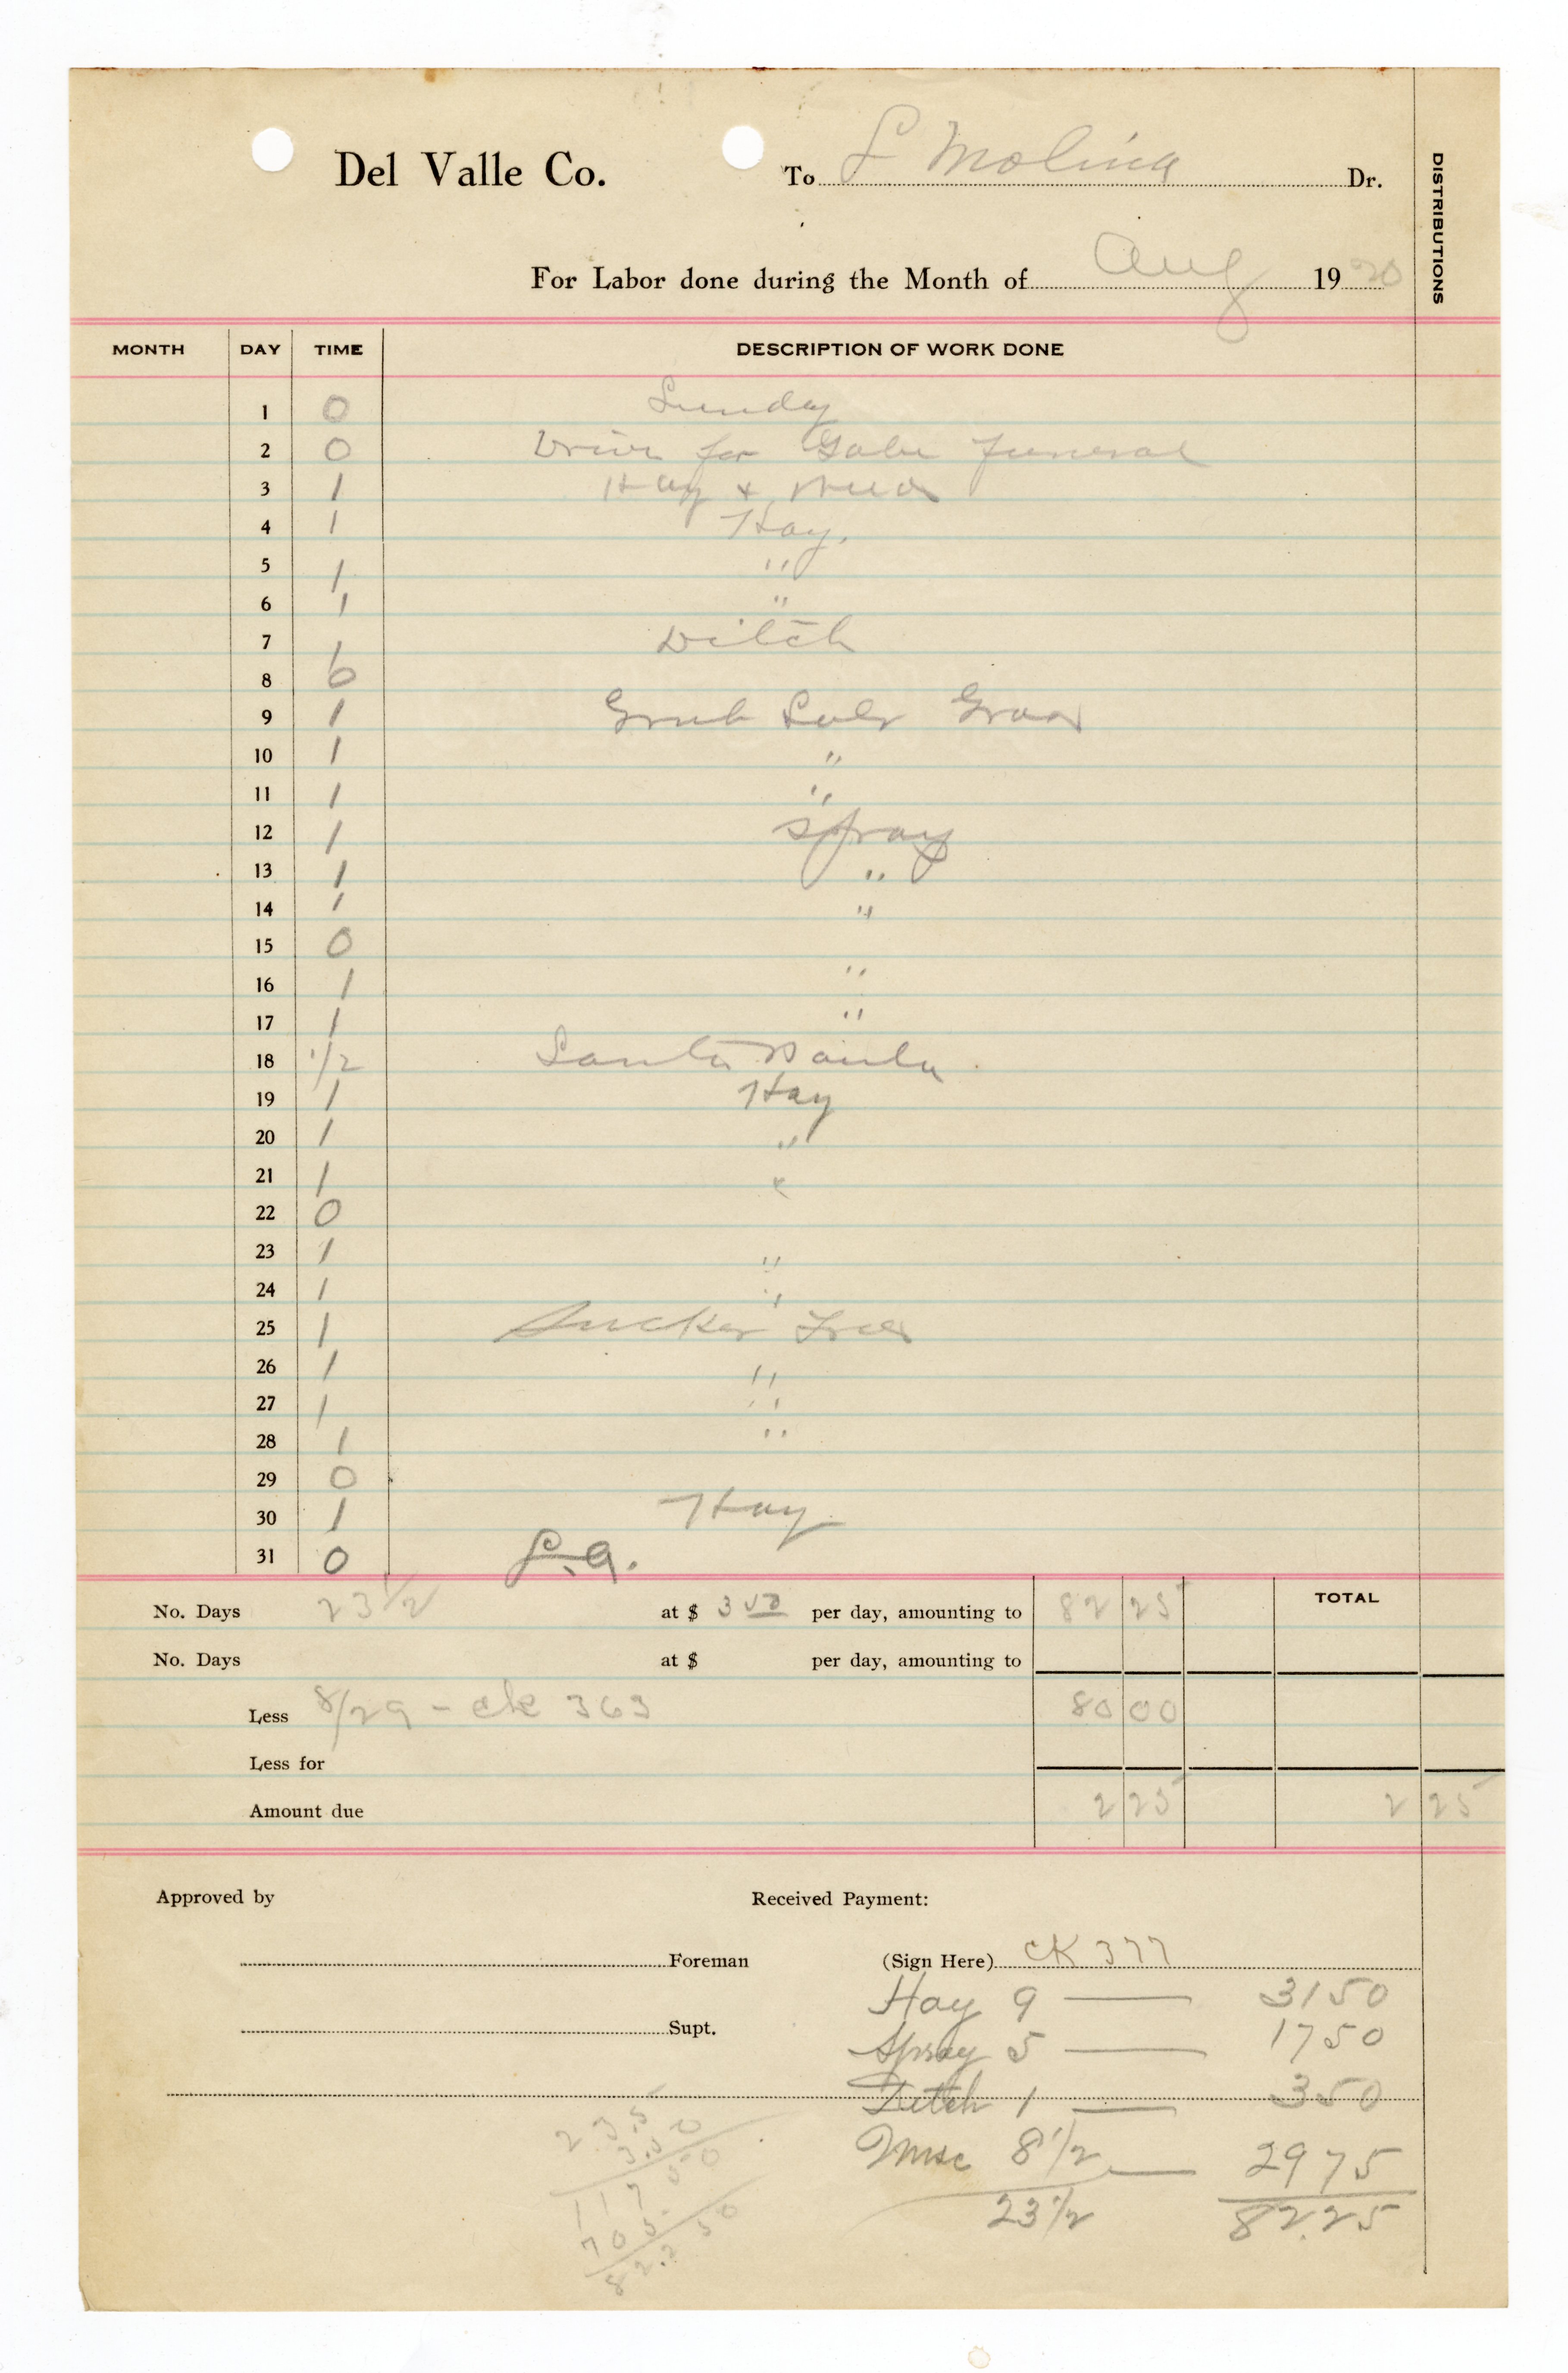 Del Valle Co. To L Molina Dr.
DISTRIBUTIONS
For Labor done during the Month of Aug 1920
MONTH DAY TIME DESCRIPTION OF WORK DONE
1 0 Sunday
2 0 Drive for Gabe funeral
3 1 Hay +
4 1 Hay.
5 1 "
6 1 "
7 1 Ditch
8 0
9 1 Grub
10 1 "
11 1 "
12 1 Spray
13 1 "
14 1 "
15 0
16 1 "
17 1 "
18 1/2 Santa Paula
19 1 Hay
20 1 "
21 1 "
22 0
23 1 "
24 1 "
25 1 Sucker Trees
26 1 "
27 1 "
28 1 "
29 0
30 1 Hay
31 0 L.A.
No. Days 23 1/2 at $ 3 50 per day, amounting to 82 25 TOTAL
No. Days at $ per day, amounting to
Less 8/29 - ck 363 80 00
Less for
Amount due 2 25 2 25
Approved by Received Payment:
Foreman (Sign Here) CK 377
Hay 9 — 3150
Supt. Spray 5 — 1750
Ditch 1 — 350
Misc 8 1/2 — 2975
23 1/2 82.25
23.5
3.50
11750
705
82.250